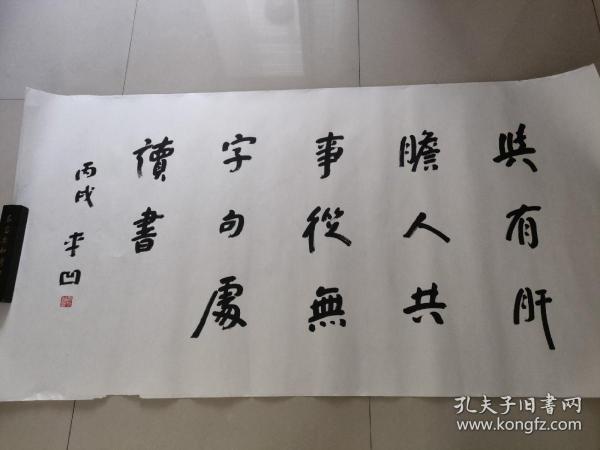 與有肝
膽人共
事從無
字句處
讀書
丙戌 平凹
孔夫子旧書网
www.kongfz.com